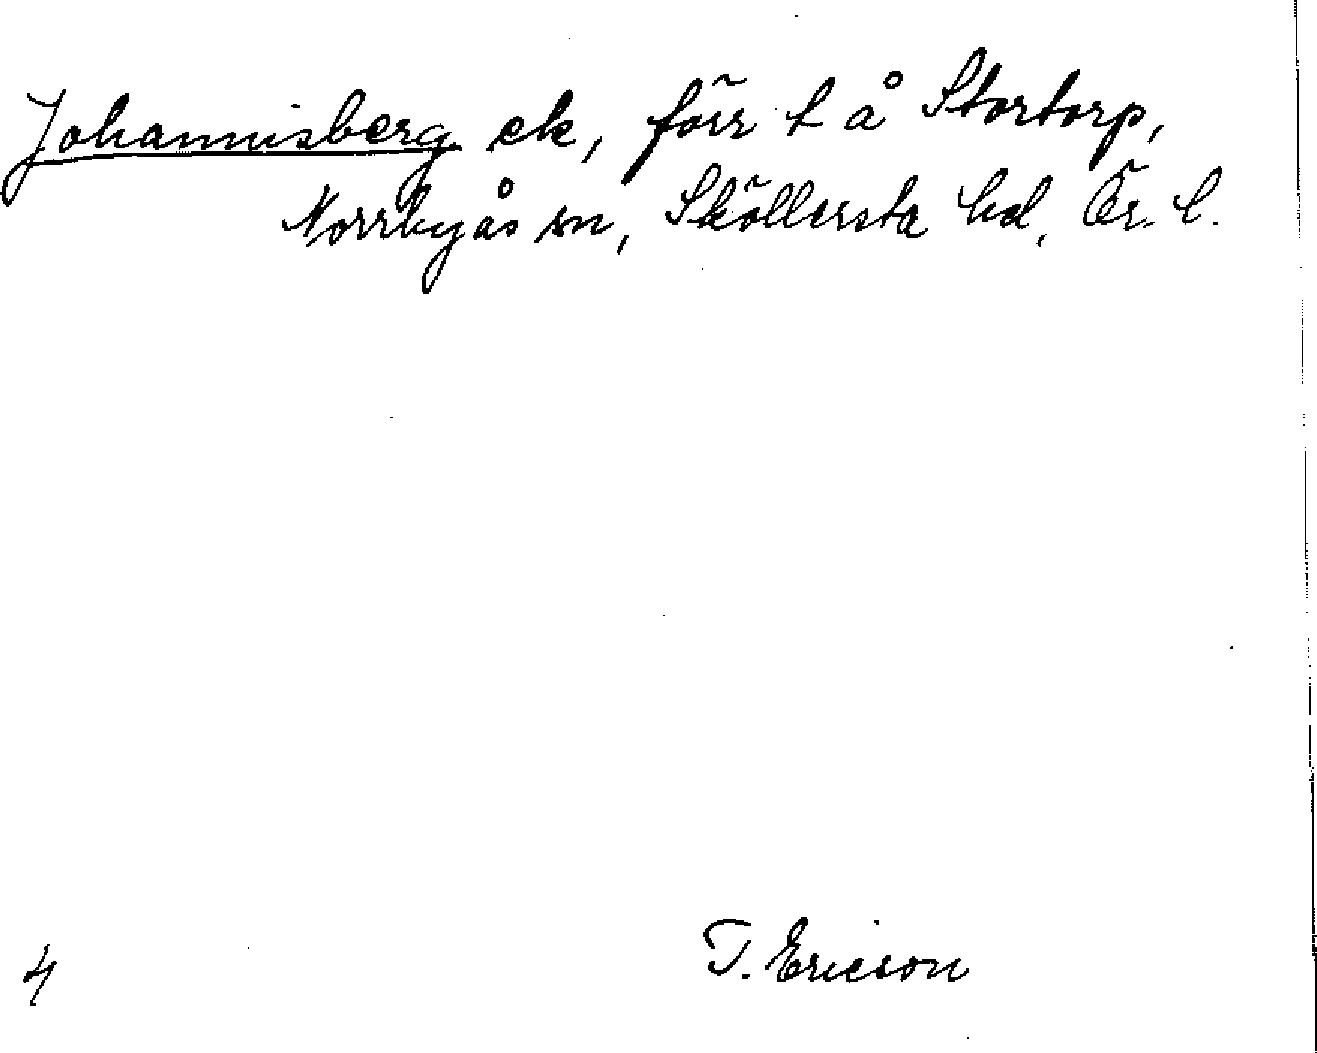 Johannisberg ek, förr t å Stortorp,
Norrbyås sn, Sköllersta hd, Ör. l.
T. Ericson
4